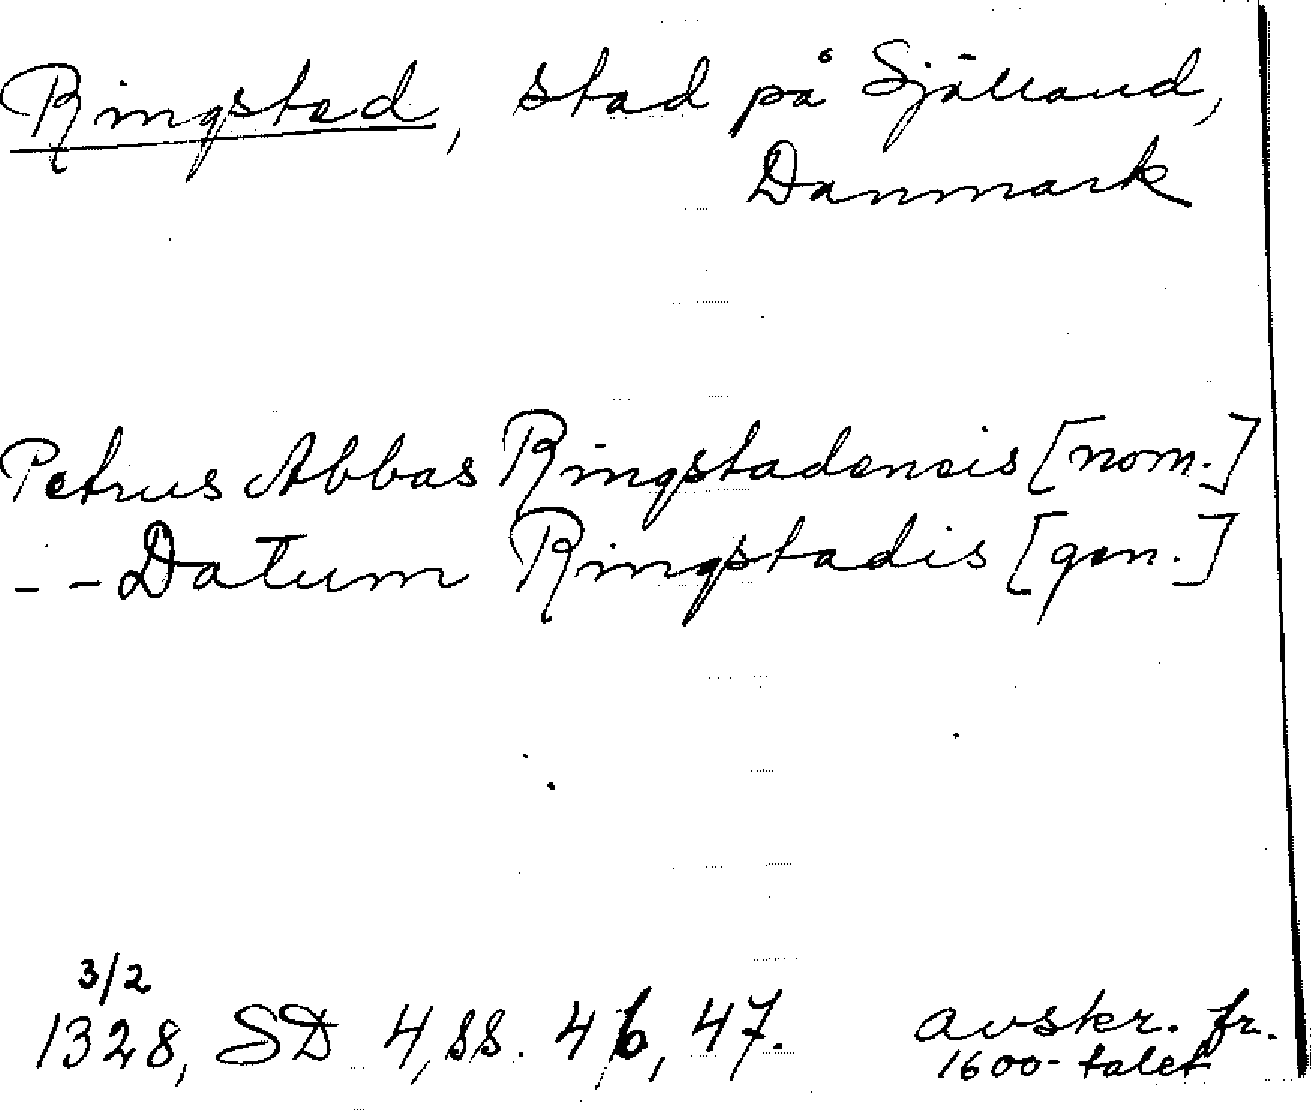 Ringstad, stad på Själland,
Danmark
Petrus Abbas Ringstadensis [nom.]
- - Datum Ringstadis [gen.]
3/2
1328, SD 4, ss. 46, 47. avskr. fr.
1600-talet